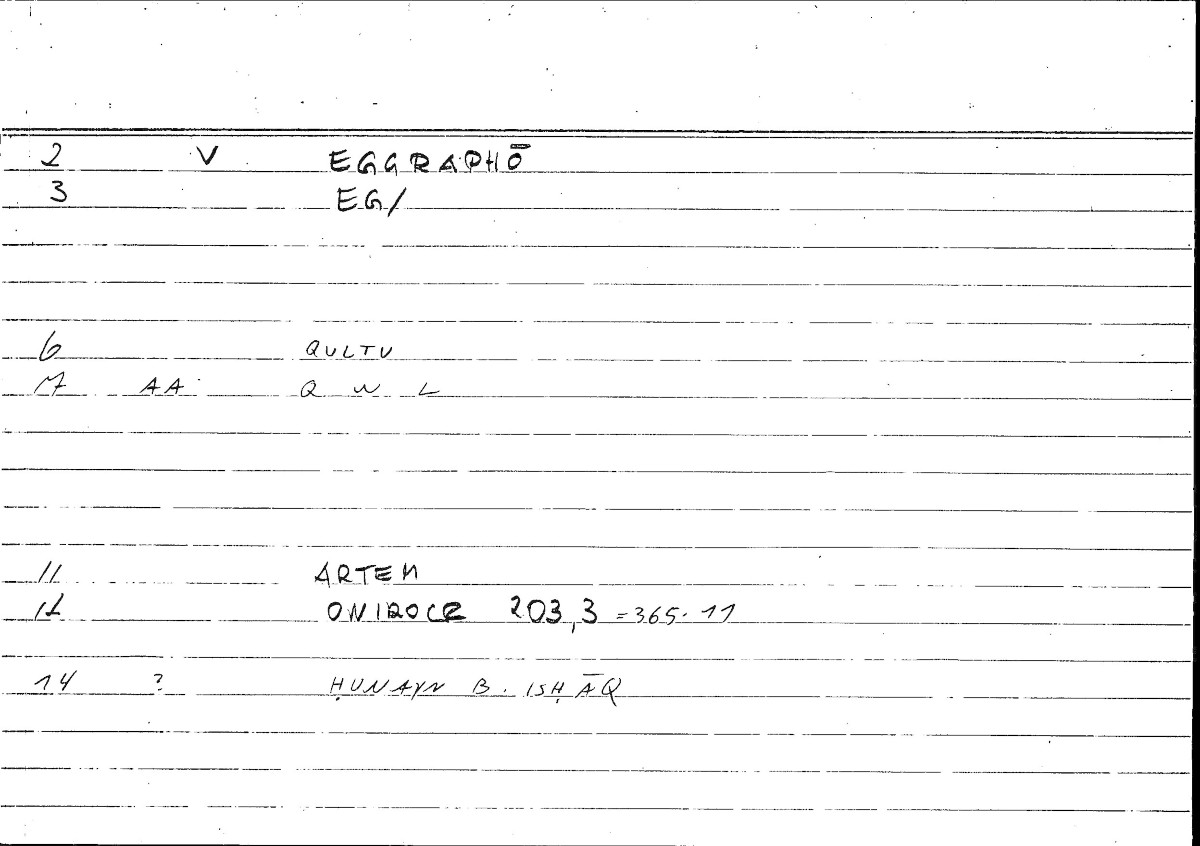 2 V EGGRAPHŌ
3 EG/
6 QULTU
7 AA Q W L
11 ARTEM
12 ONIROCR 203,3 =365.11
14 ? ḤUNAYN B. ISḤĀQ